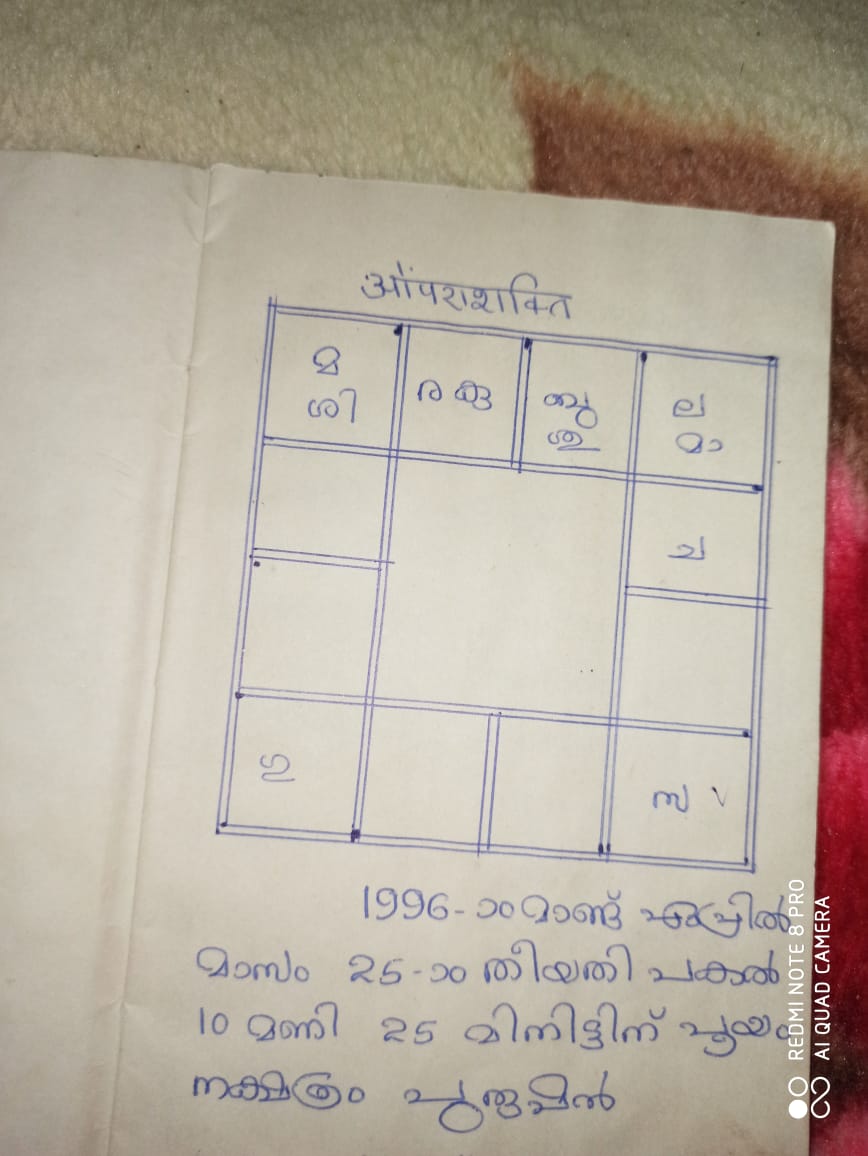 ഓംപരാശക്തി
മ ര കു ബു ല
ശി ശു മാ
ച
ഗു സ
1996-ാംമാണ്ട് ഏപ്രിൽ
മാസം 25-ാം തീയതി പകൽ
10 മണി 25 മിനിട്ടിന് പൂയം
നക്ഷത്രം പുരുഷൻ
REDMI NOTE 8 PRO
AI QUAD CAMERA